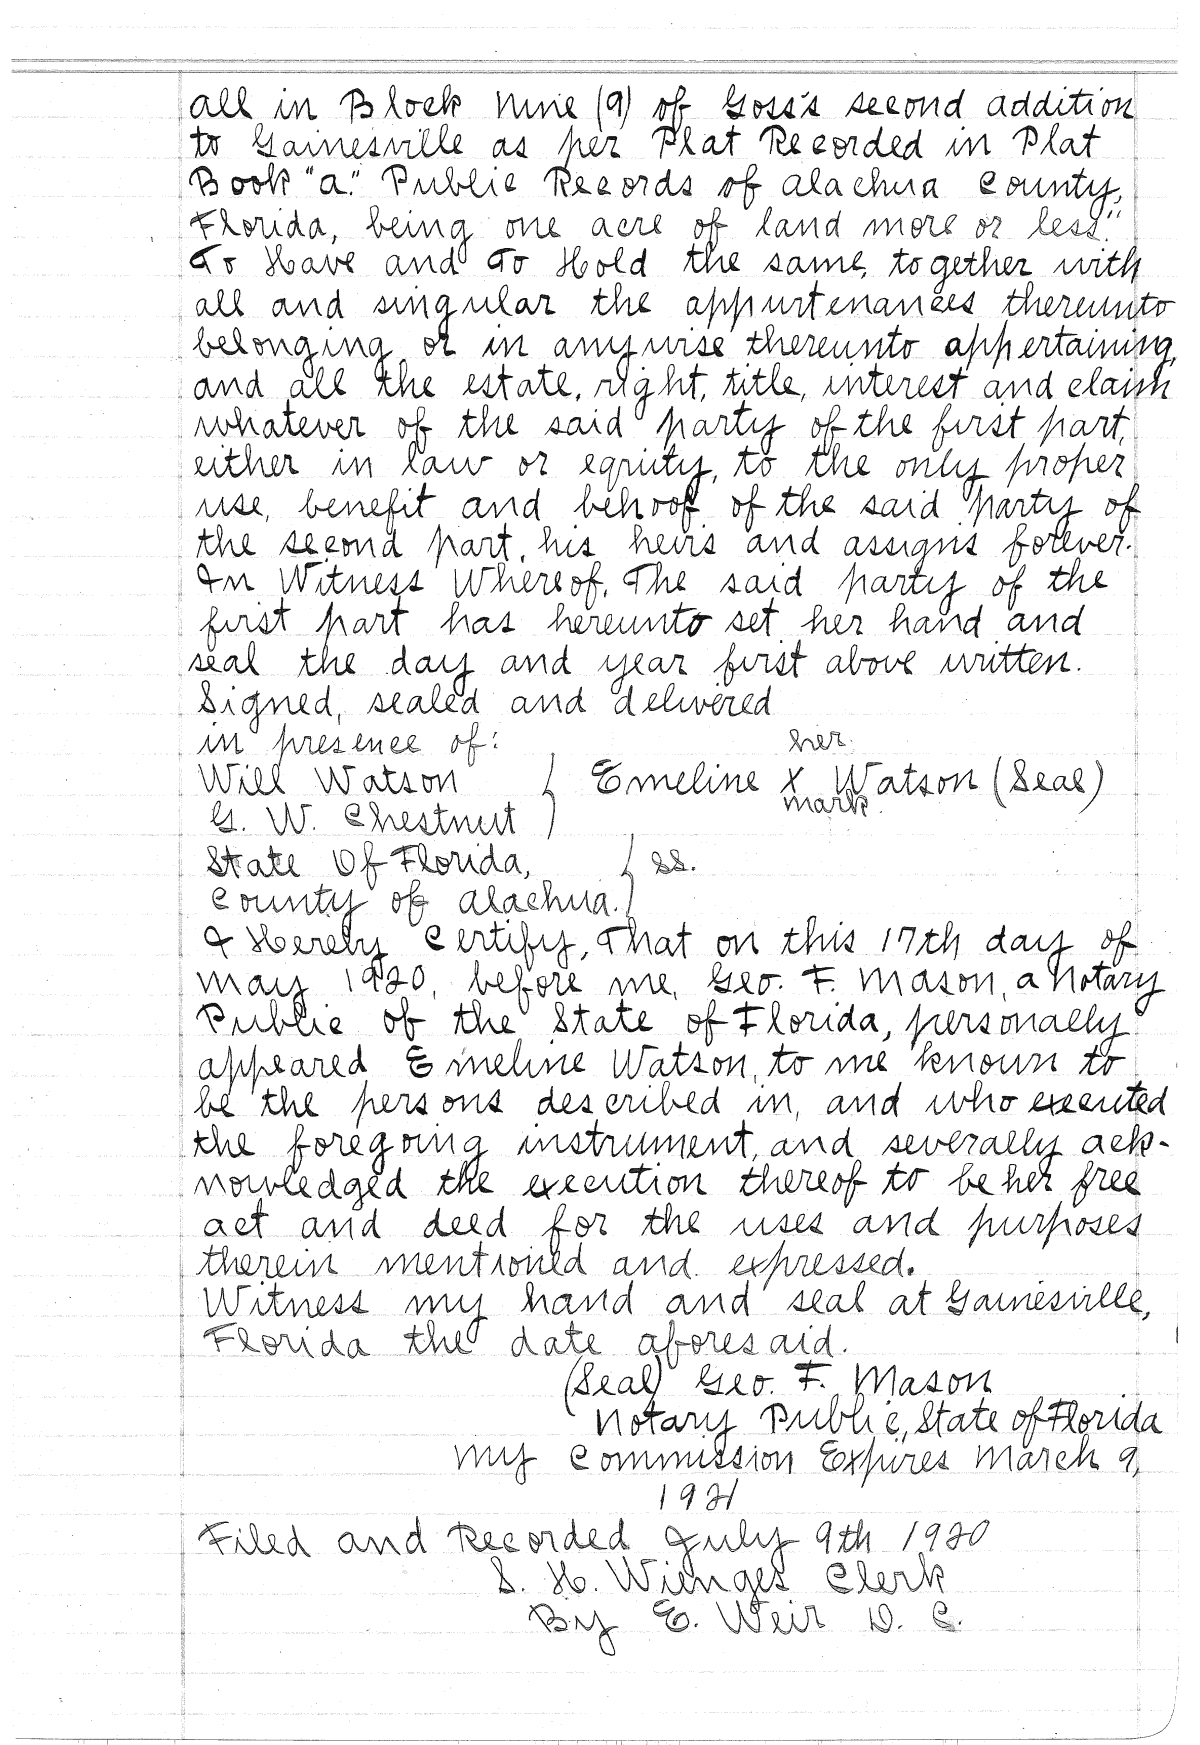 all in Block Nine (9) of Goss's second addition
to Gainesville as per Plat Recorded in Plat
Book "a." Public Records of Alachua County,
Florida, being one acre of land more or less."
To Have and To Hold the same, together with
all and singular the appurtenances thereunto
belonging or in anywise thereunto appertaining,
and all the estate, right, title, interest and claim
whatever of the said party of the first part,
either in law or equity, to the only proper
use, benefit and behoof of the said party of
the second part, his heirs and assigns forever.
In Witness Whereof, The said party of the
first part has hereunto set her hand and
seal the day and year first above written.
Signed, sealed and delivered
in presence of:
her
Will Watson } Emeline X Watson (Seal)
mark.
G. W. Chestnut
State Of Florida, } ss.
County of Alachua.
I Hereby Certify, That on this 17th day of
May 1920, before me, Geo. F. Mason, a Notary
Public of the State of Florida, personally
appeared Emeline Watson, to me known to
be the persons described in, and who executed
the foregoing instrument, and severally ack-
nowledged the execution thereof to be her free
act and deed for the uses and purposes
therein mentioned and expressed.
Witness my hand and seal at Gainesville,
Florida the date aforesaid.
(Seal) Geo. F. Mason
Notary Public, State of Florida
My Commission Expires March 9,
1921
Filed and Recorded July 9th 1920
S. H. Wienges Clerk
By E. Weir D. C.